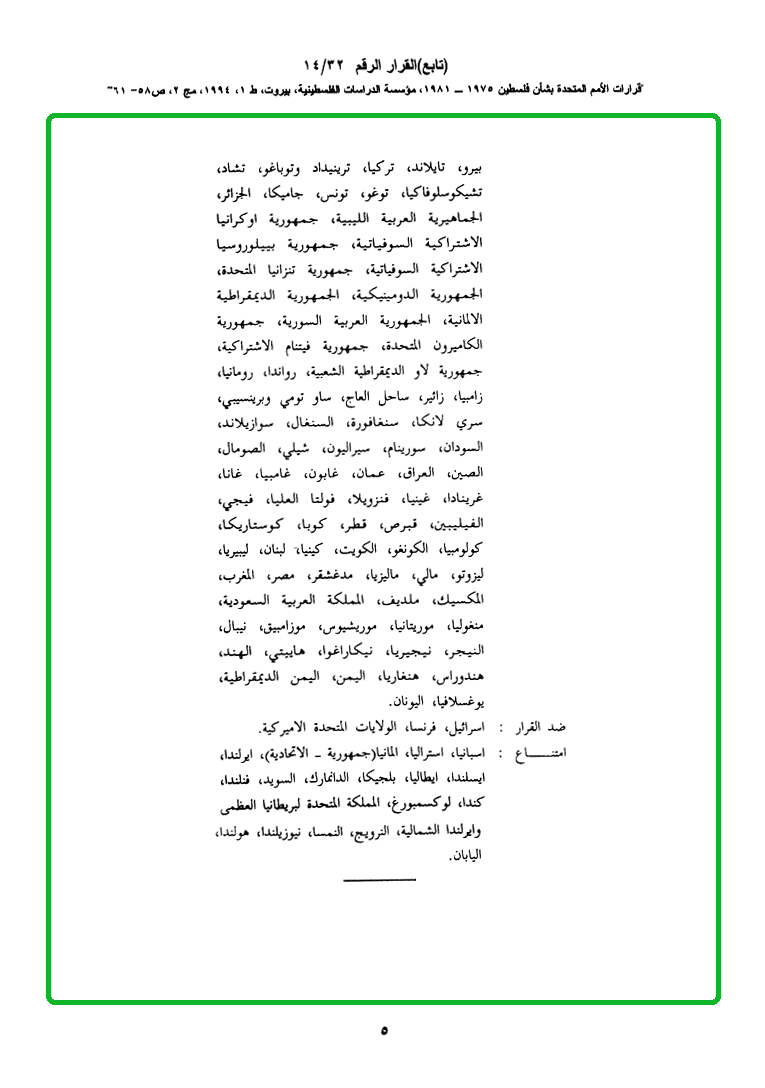 (تابع)القرار الرقم ١٤/٣٢
"قرارات الأمم المتحدة بشأن فلسطين ١٩٧٥ ــ ١٩٨١، مؤسسة الدراسات الفلسطينية، بيروت، ط ١، ١٩٩٤، مج ٢، ص٥٨- ٦١"
بيرو، تايلاند، تركيا، ترينيداد وتوباغو، تشاد،
تشيكوسلوفاكيا، توغو، تونس، جاميكا، الجزائر،
الجماهيرية العربية الليبية، جمهورية اوكرانيا
الاشتراكية السوفياتية، جمهورية بييلوروسيا
الاشتراكية السوفياتية، جمهورية تنزانيا المتحدة،
الجمهورية الدومينيكية، الجمهورية الديمقراطية
الالمانية، الجمهورية العربية السورية، جمهورية
الكاميرون المتحدة، جمهورية فيتنام الاشتراكية،
جمهورية لاو الديمقراطية الشعبية، رواندا، رومانيا،
زامبيا، زائير، ساحل العاج، ساو تومي وبرينسيبي،
سري لانكا، سنغافورة، السنغال، سوازيلاند،
السودان، سورينام، سيراليون، شيلي، الصومال،
الصين، العراق، عمان، غابون، غامبيا، غانا،
غرينادا، غينيا، فنزويلا، فولتا العليا، فيجي،
الفيليبين، قبرص، قطر، كوبا، كوستاريكا،
كولومبيا، الكونغو، الكويت، كينيا، لبنان، ليبيريا،
ليزوتو، مالي، ماليزيا، مدغشقر، مصر، المغرب،
المكسيك، ملديف، المملكة العربية السعودية،
منغوليا، موريتانيا، موريشيوس، موزامبيق، نيبال،
النيجر، نيجيريا، نيكاراغوا، هاييتي، الهند،
هندوراس، هنغاريا، اليمن، اليمن الديمقراطية،
يوغسلافيا، اليونان.
ضد القرار : اسرائيل، فرنسا، الولايات المتحدة الاميركية.
امتنـــــاع : اسبانيا، استراليا، المانيا(جمهورية ــ الاتحادية)، ايرلندا،
ايسلندا، ايطاليا، بلجيكا، الدانمارك، السويد، فنلندا،
كندا، لوكسمبورغ، المملكة المتحدة لبريطانيا العظمى
وايرلندا الشمالية، النرويج، النمسا، نيوزيلندا، هولندا،
اليابان.
٥